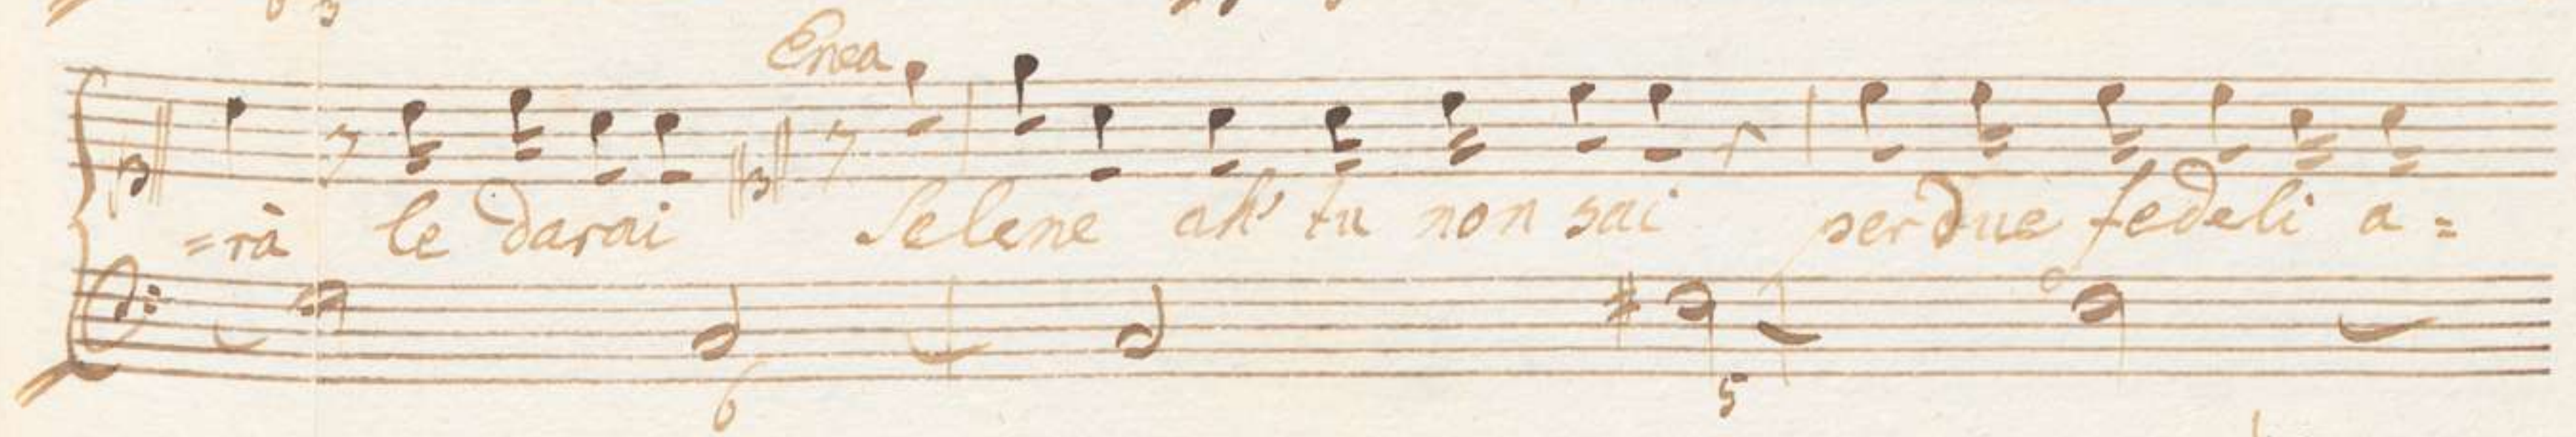 Enea
=rà le darai Selene ah' tu non sai per due fedeli a=
6
5